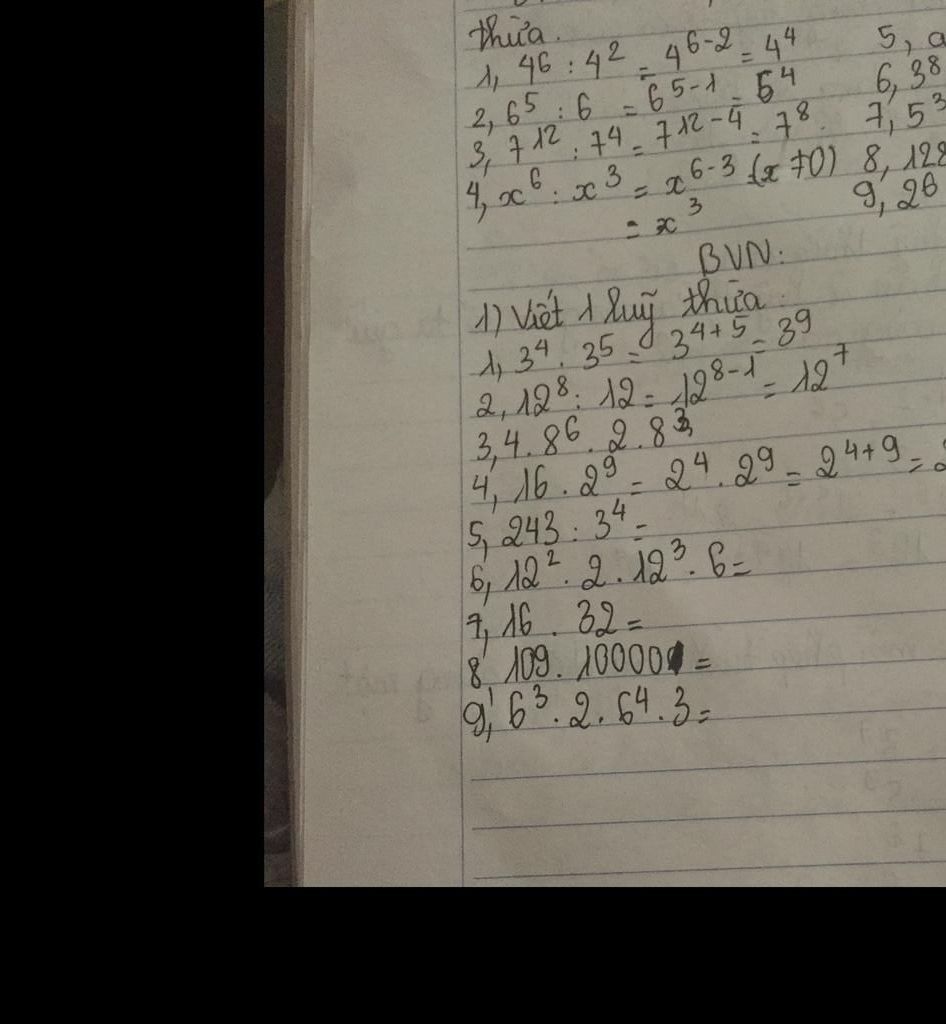 thừa.
1, 4⁶ : 4² = 4⁶⁻² = 4⁴ 5, a
2, 6⁵ : 6 = 6⁵⁻¹ = 6⁴ 6, 3⁸
3, 7¹² : 7⁴ = 7¹²⁻⁴ = 7⁸. 7, 5³
4, x⁶ : x³ = x⁶⁻³ (x ≠ 0) 8, 128
= x³ 9, 26
BVN:
1) Viết 1 luỹ thừa:
1, 3⁴ . 3⁵ = 3⁴⁺⁵ = 3⁹
2, 12⁸ : 12 = 12⁸⁻¹ = 12⁷
3, 4 . 8⁶ . 2 . 8³
4, 16 . 2⁹ = 2⁴ . 2⁹ = 2⁴⁺⁹ = 2
5, 243 : 3⁴ =
6, 12² . 2 . 12³ . 6 =
7, 16 . 32 =
8, 109 . 10000 =
9, 6³ . 2 . 6⁴ . 3 =